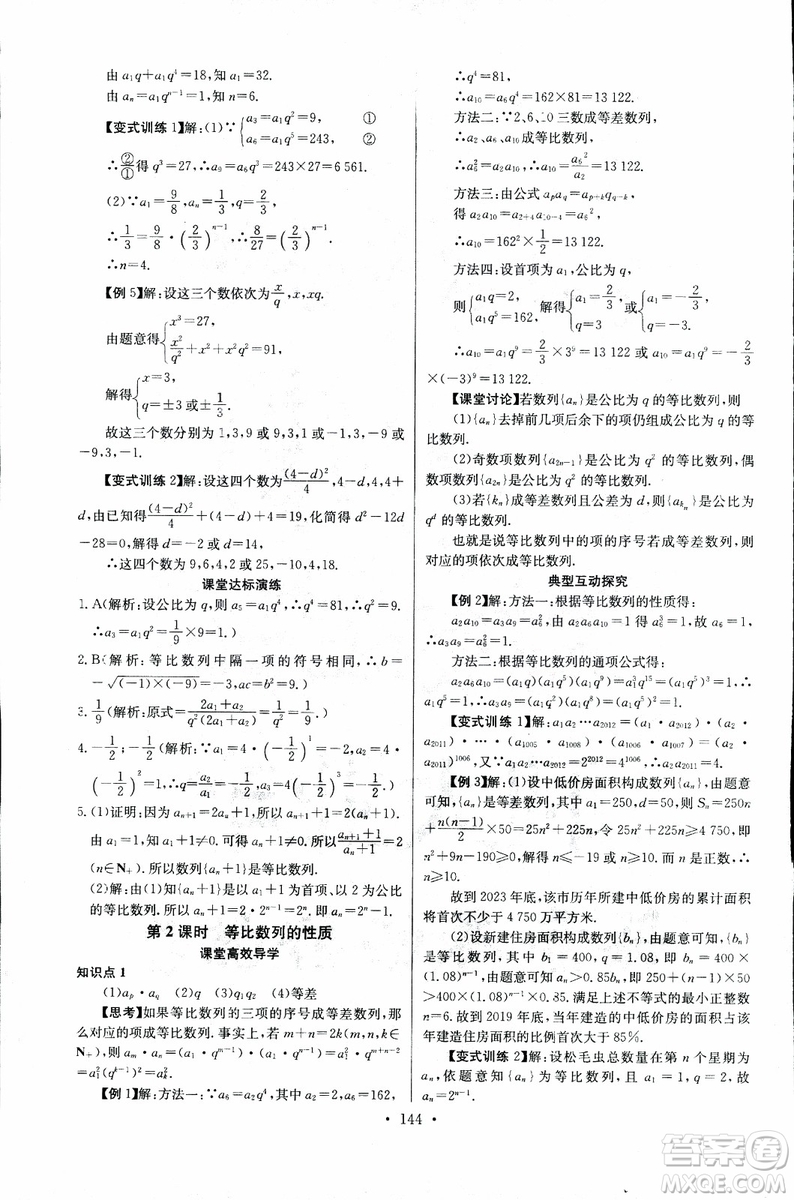 由 a₁q+a₁q⁴=18, 知 a₁=32.
由 aₙ=a₁qⁿ⁻¹=1, 知 n=6.
【变式训练 1】解:(1)∵{a₃=a₁q²=9, ①
a₆=a₁q⁵=243, ②
∴②/①得 q³=27, ∴a₉=a₆q³=243×27=6 561.
(2)∵a₁=9/8, aₙ=1/3, q=2/3,
∴1/3=9/8·(2/3)ⁿ⁻¹, ∴8/27=(2/3)ⁿ⁻¹,
∴n=4.
【例 5】解:设这三个数依次为x/q, x, xq.
由题意得{x³=27,
x²/q²+x²+x²q²=91,
解得{x=3,
q=±3 或±1/3.
故这三个数分别为 1,3,9 或 9,3,1 或−1,3,−9 或
−9,3,−1.
【变式训练 2】解:设这四个数为(4−d)²/4, 4−d, 4, 4+
d, 由已知(4−d)²/4+(4−d)+4=19, 化简得 d²−12d
−28=0. 解得 d=−2 或 d=14.
∴这四个数为 9,6,4,2 或 25,−10,4,18.
课堂达标演练
1. A(解析:设公比为 q, 则 a₅=a₁q⁴, ∴q⁴=9.
∴a₃=a₁q²=1/9×√9=1/3.)
2. B(解析:等比数列中隔一项的符号相同, ∴b=
−√(−1)×(−9)=−3, ac=b²=9.)
3. 1/9(解析:原式=(2a₁+a₂)/(q²(2a₁+a₂))=1/q²=1/9.)
4. −1/2; −1/2(解析: ∵a₂/a₁=q, ∴q=(1/4)/(−1/2)=−1/2;
(−1/2)²=q²=1/4.)
5. (1)证明:因为 aₙ₊₁=2aₙ+1, 所以 aₙ₊₁+1=2(aₙ+1).
由 a₁=1, 知 a₁+1≠0, 可得 aₙ+1≠0. 所以(aₙ₊₁+1)/(aₙ+1)=2
(n∈N₊). 所以数列{aₙ+1}是等比数列.
(2)解:由(1)知{aₙ+1}是以 a₁+1=2 为首项、以 2 为公比
的等比数列. 所以 aₙ+1=2·2ⁿ⁻¹, 即 aₙ=2ⁿ−1.
第 2 课时 等比数列的性质
课堂高效导学
知识点 1
(1)aₚ·a_q (2)q (3)q₁q₂ (4)等差
【思考】如果等比数列的三项的序号成等差数列, 那
么对应的项成等比数列. 事实上, 若 m+n=2k(m,n,k∈
N₊), 则 aₘ·aₙ=(a₁·qᵐ⁻¹)·(a₁·qⁿ⁻¹)=a₁²·qᵐ⁺ⁿ⁻²
=a₁²(qᵏ⁻¹)²=aₖ².
【例 1】解:方法一: ∵a₆=a₂q⁴, 其中 a₂=2, a₆=162,
∴q⁴=81,
∴a₁₀=a₆q⁴=162×81=13 122.
方法二: ∵2、6、10 三数成等差数列,
∴a₂、a₆、a₁₀成等比数列.
∴a₆²=a₂a₁₀, ∴a₁₀=a₆²/a₂=13 122.
方法三:由公式 aₚa_q=aₚ₊ₖa_q₋ₖ,
得 a₂a₁₀=a₂₊₄a₁₀₋₄=a₆²,
∴a₁₀=162²×1/2=13 122.
方法四:设首项为 a₁, 公比为 q,
则{a₁q=2, a₁q⁵=162, 解得{a₁=2/3, q=3 或{a₁=−2/3, q=−3.
∴a₁₀=a₁q⁹=2/3×3⁹=13 122 或 a₁₀=a₁q⁹=−2/3
×(−3)⁹=13 122.
【课堂讨论】若数列{aₙ}是公比为 q 的等比数列, 则
(1){aₙ}去掉前几项后余下的项仍组成公比为 q 的等
比数列.
(2)奇数项数列{a₂ₙ₋₁}是公比为 q² 的等比数列, 偶
数项数列{a₂ₙ}是公比为 q² 的等比数列.
(3)若{kₙ}成等差数列且公差为 d, 则{a_kₙ}是公比为
q^d 的等比数列.
也就是说等比数列中的项的序号若成等差数列, 则
对应的项依次成等比数列.
典型互动探究
【例 2】解:方法一:根据等比数列的性质得:
a₂a₁₀=a₃a₉=a₆², 由 a₂a₆a₁₀=1, 得 a₆³=1, 故 a₆=1,
∴a₃a₉=a₆²=1.
方法二:根据等比数列的通项公式得:
a₂a₆a₁₀=(a₁q)(a₁q⁵)(a₁q⁹)=a₁³q¹⁵=(a₁q⁵)³=1, 故
a₁q⁵=1, 所以 a₃a₉=(a₁q²)(a₁q⁸)=(a₁q⁵)²=1.
【变式训练 1】解:a₁a₂…a₂₀₁₂=(a₁·a₂₀₁₂)·(a₂·
a₂₀₁₁)·…·(a₁₀₀₅·a₁₀₀₈)·(a₁₀₀₆·a₁₀₀₇)=(a₂·
a₂₀₁₁)¹⁰⁰⁶, 又∵a₁a₂…a₂₀₁₂=2²⁰¹²=4¹⁰⁰⁶, ∴a₂a₂₀₁₁=4.
【例 3】解:(1)设中低价房面积构成数列{aₙ}, 由题意
可知, {aₙ}是等差数列. 其中 a₁=250, d=50, 则 Sₙ=250n
+n(n−1)/2×50=25n²+225n, 令 25n²+225n≥4 750, 即
n²+9n−190≥0, 解得 n≤−19 或 n≥10. 而 n 是正整数,
∴n≥10.
故到 2023 年底, 该市历年所建中低价房的累计面积
将首次不少于 4 750 万平方米.
(2)设新建住房面积构成数列{bₙ}, 由题意可知, {bₙ}
是等比数列. 其中 b₁=400, q=1.08, 则 bₙ=400×
(1.08)ⁿ⁻¹, 由题意可知 aₙ>0.85bₙ, 有 250+(n−1)·50
>400×(1.08)ⁿ⁻¹×0.85. 满足上述不等式的最小正整数
n=6. 故到 2019 年底, 当年建造的中低价房的面积占该
年建造住房面积的比例首次大于 85%.
【变式训练 2】解:设松毛虫总数量在第 n 个星期为
aₙ, 依题意知{aₙ}为等比数列, 且 a₁=1, a₂=2, 故 q=2,
aₙ=2ⁿ⁻¹.
· 144 ·
答案圈
MXQE.COM